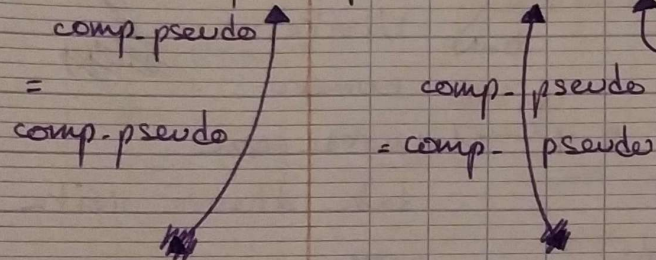 comp-pseudo
=
comp-pseudo
comp-pseudo
= comp- pseudo